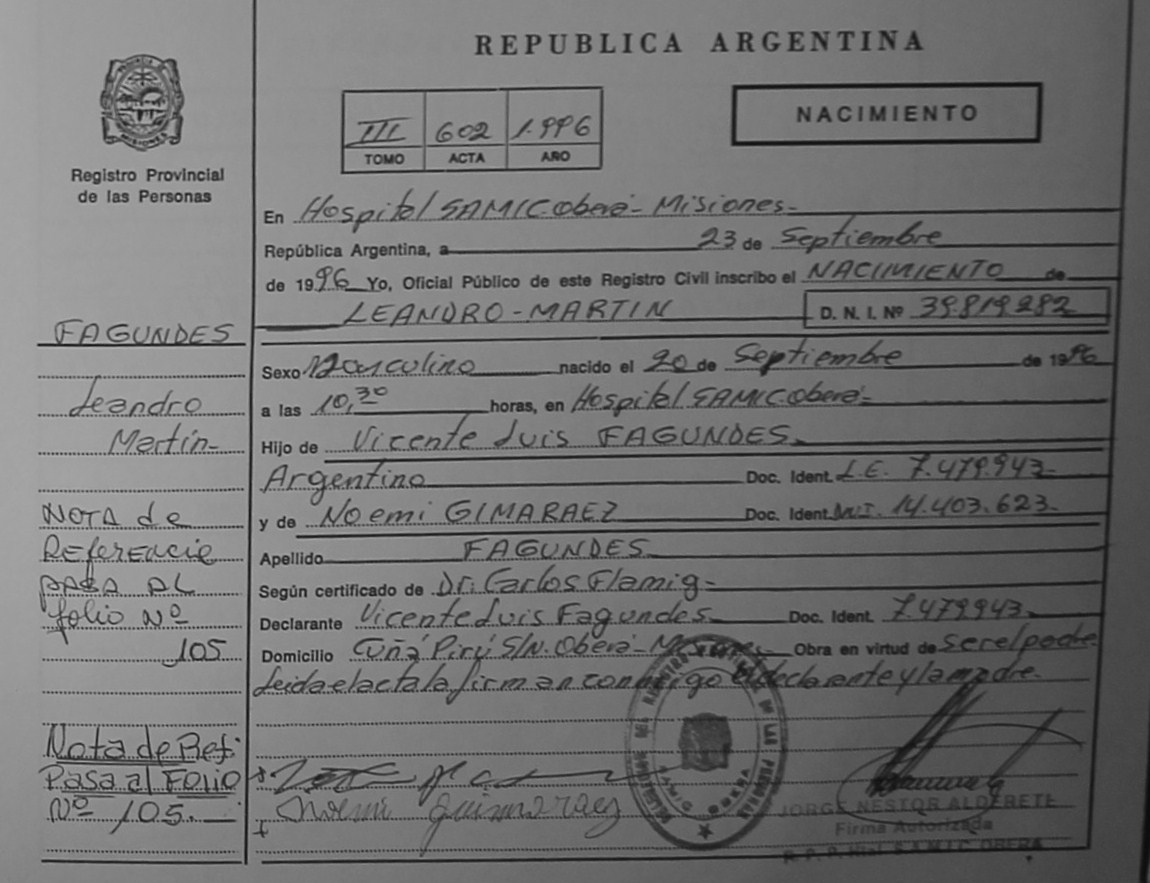 REPUBLICA ARGENTINA
PROVINCIA DE
MISIONES
Registro Provincial
de las Personas
III 602 1.996
TOMO ACTA AÑO
NACIMIENTO
En Hospital SAMIC Oberá - Misiones -
República Argentina, a 23 de Septiembre
de 1996 Yo, Oficial Público de este Registro Civil inscribo el NACIMIENTO de
LEANDRO - MARTIN D. N. I. Nº 39.819.282
FAGUNDES
Leandro
Martín -
NOTA de
Referencia
pasa al
folio Nº
105
Nota de Ref:
Pasa al Folio
Nº 105. -
Sexo Masculino nacido el 20 de Septiembre de 1996
a las 10,30 horas, en Hospital SAMIC Oberá -
Hijo de Vicente Luis FAGUNDES -
Argentino Doc. Ident. L.E. 7.479.943 -
y de Noemi GIMARAEZ Doc. Ident. 14.403.623 -
Apellido FAGUNDES
Según certificado de Dr. Carlos Flamig -
Declarante Vicente Luis Fagundes - Doc. Ident. 7.479.943 -
Domicilio Cuñá Pirú S/N. Oberá - Misiones - Obra en virtud de ser el padre
Leida el acta la firman conmigo el declarante y la madre -
Noemi Guimaraez
JORGE NESTOR ALDERETE
Firma Autorizada
R. P. P. Htal S.A.M.I.C. OBERA